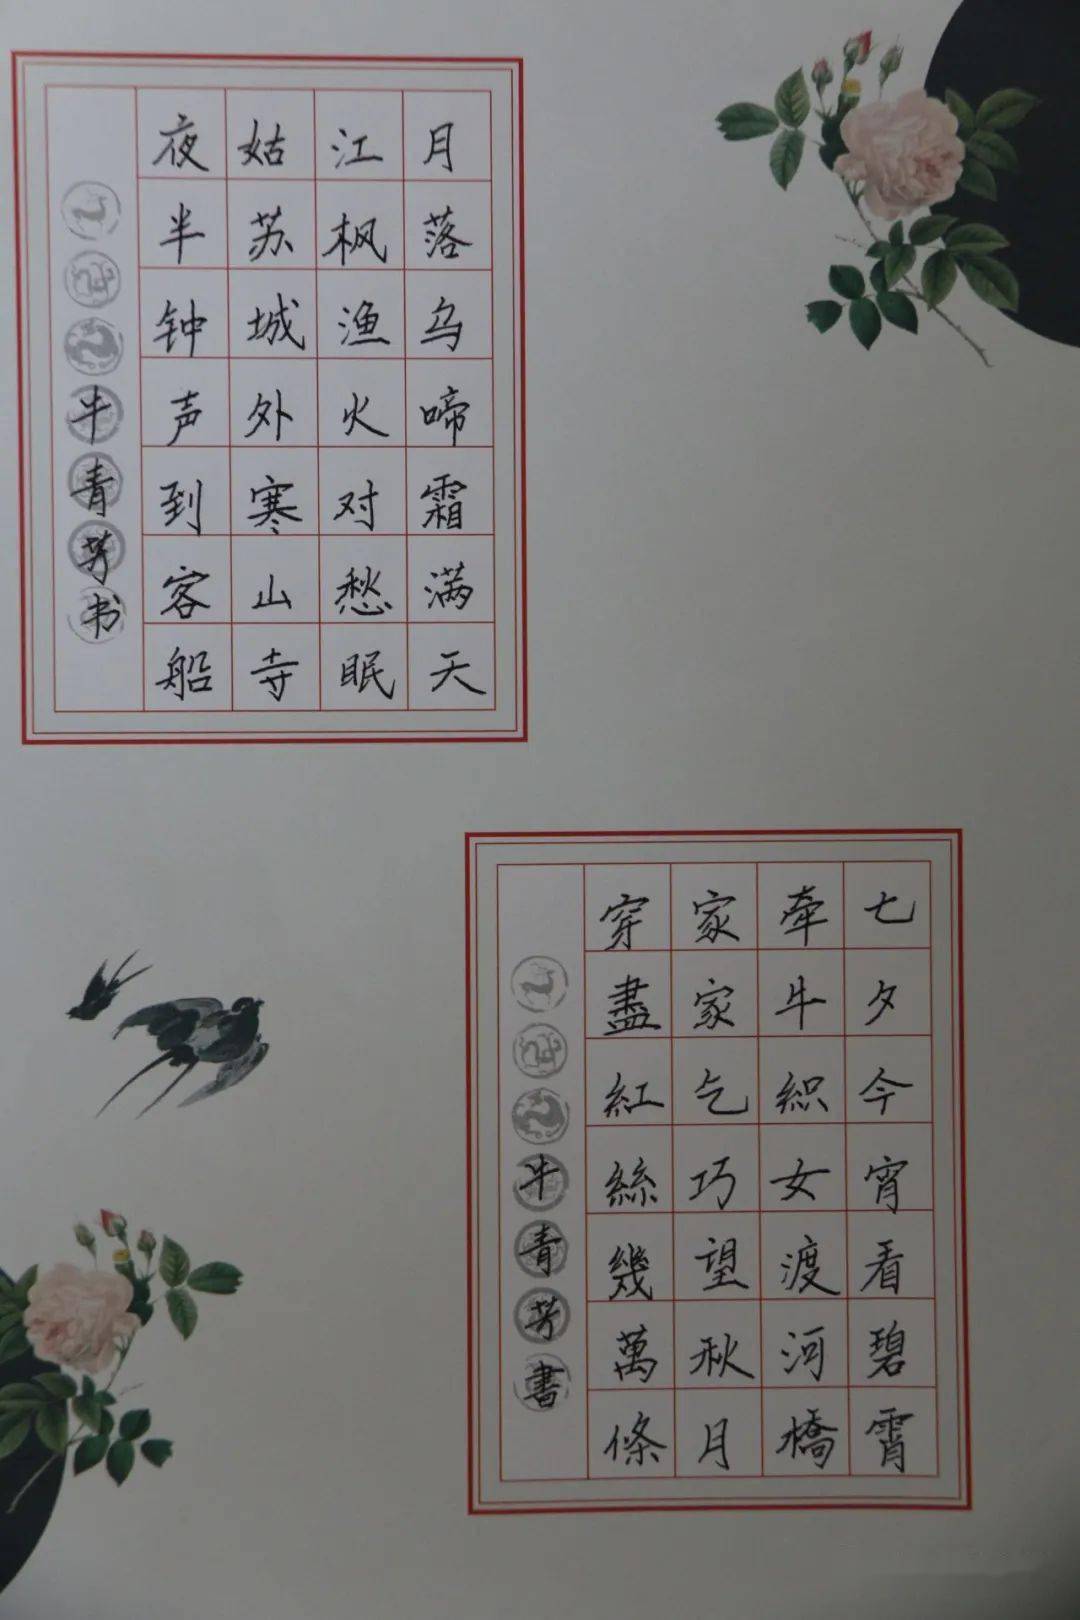 月落乌啼霜满天
江枫渔火对愁眠
姑苏城外寒山寺
夜半钟声到客船
牛青芳书
七夕今宵看碧霄
牽牛織女渡河橋
家家乞巧望秋月
穿盡紅絲幾萬條
牛青芳書